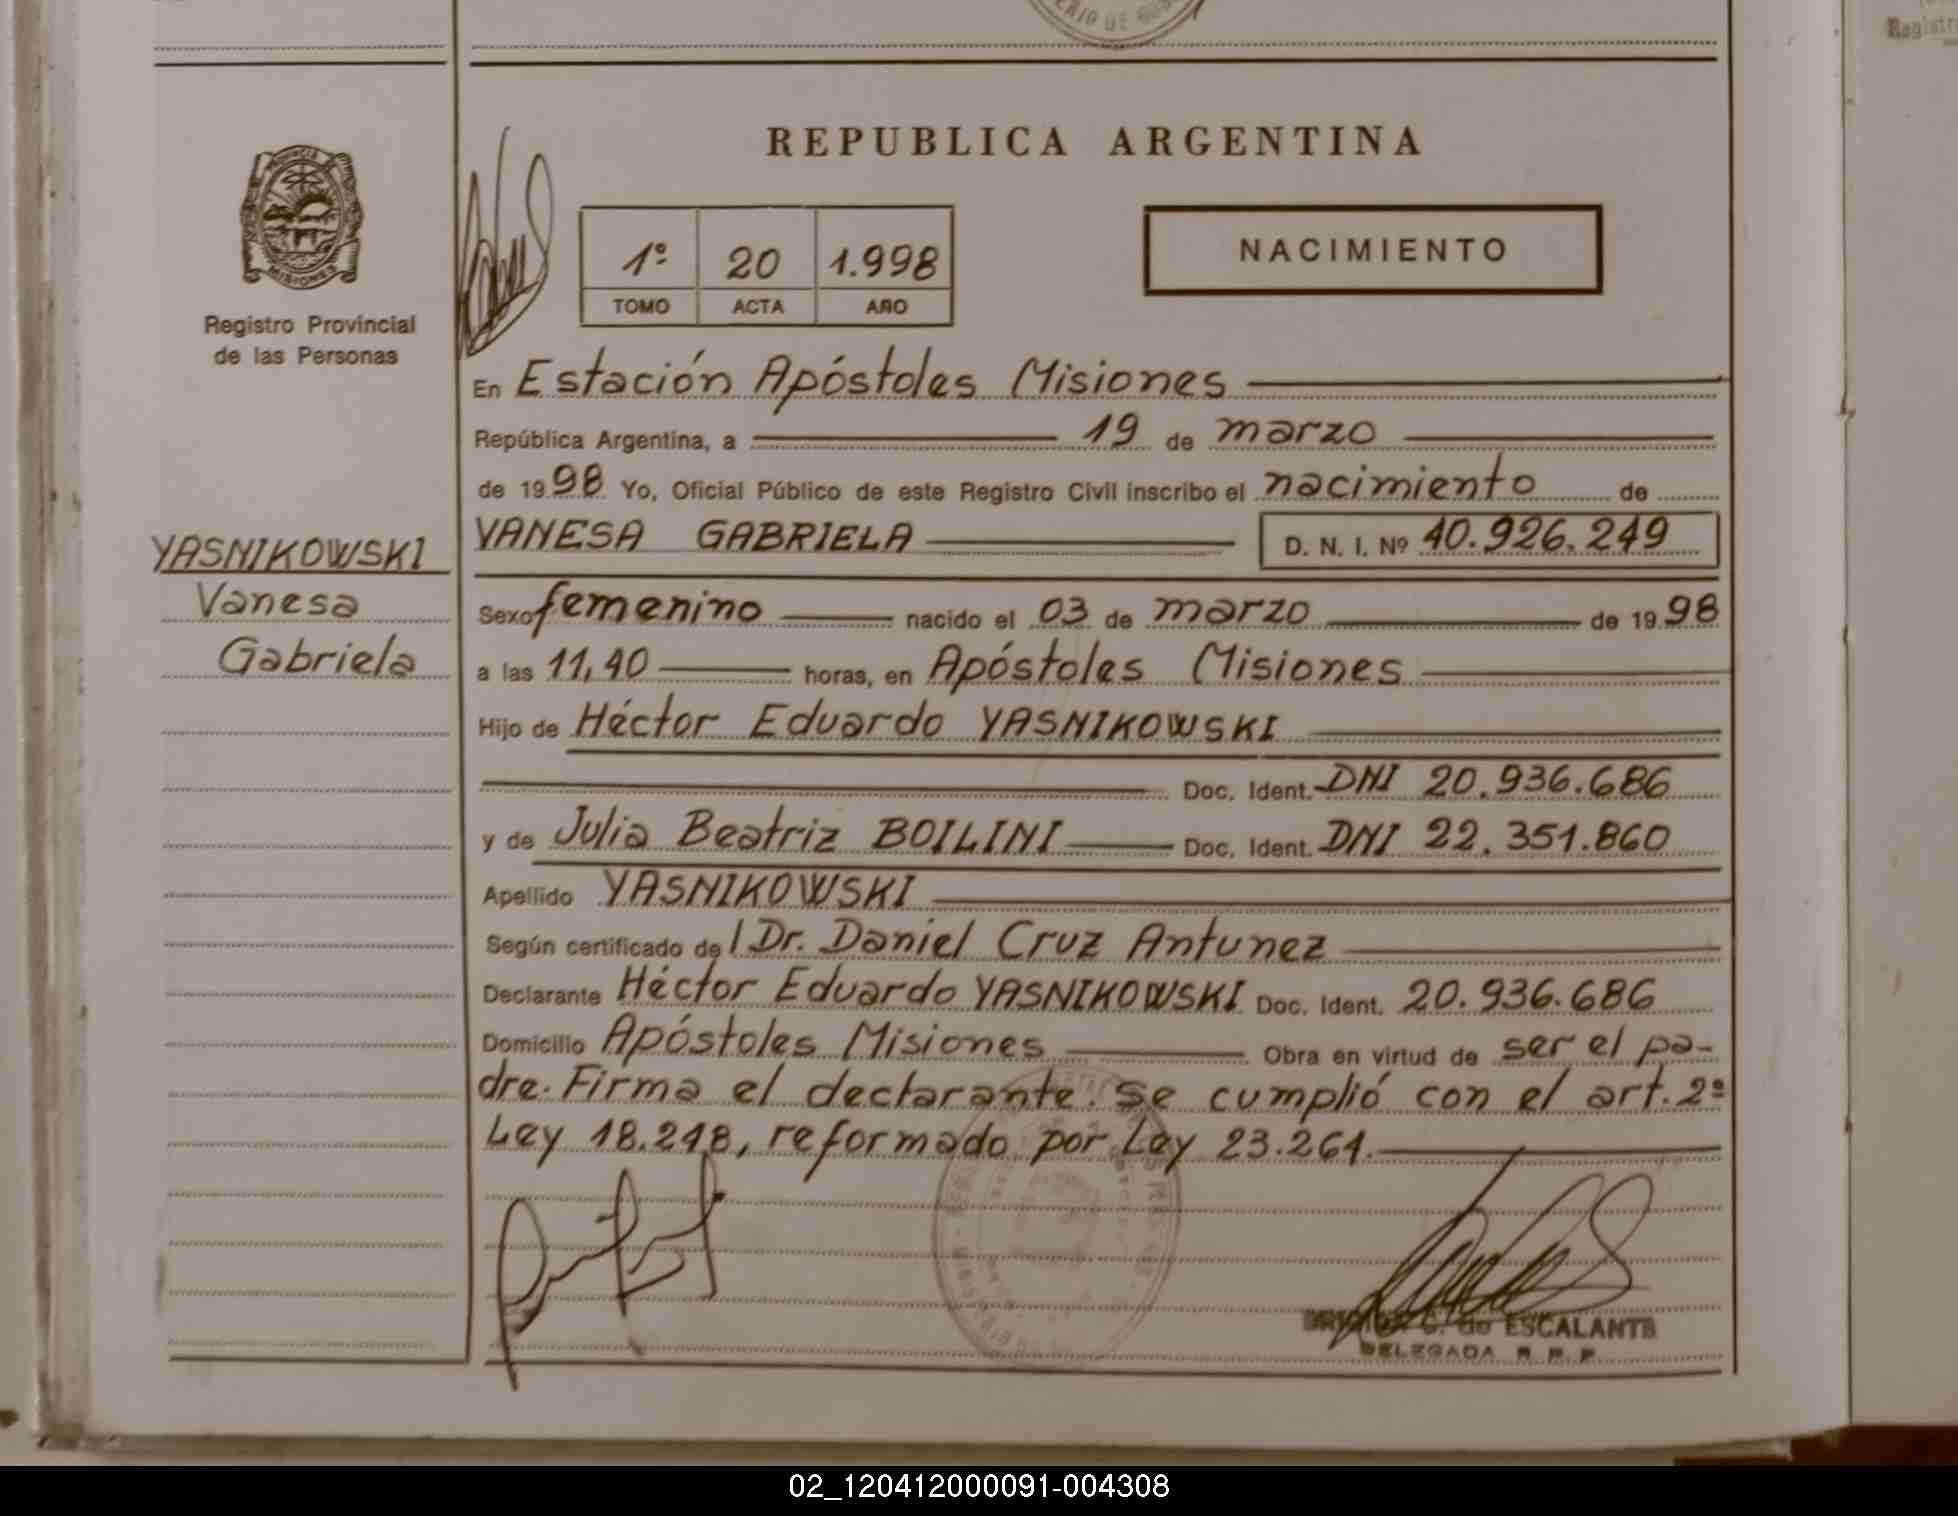 REPUBLICA ARGENTINA
PROVINCIA DE
MISIONES
Registro Provincial
de las Personas
1º 20 1.998
TOMO ACTA AÑO
NACIMIENTO
En Estación Apóstoles Misiones
República Argentina, a 19 de marzo
de 1998 Yo, Oficial Público de este Registro Civil inscribo el nacimiento de
VANESA GABRIELA D. N. I. Nº 40.926.249
YASNIKOWSKI
Vanesa
Gabriela
Sexo femenino nacido el 03 de marzo de 1998
a las 11,40 horas, en Apóstoles Misiones
Hijo de Héctor Eduardo YASNIKOWSKI
Doc. Ident. DNI 20.936.686
y de Julia Beatriz BOILINI Doc. Ident. DNI 22.351.860
Apellido YASNIKOWSKI
Según certificado del Dr. Daniel Cruz Antunez
Declarante Héctor Eduardo YASNIKOWSKI Doc. Ident. 20.936.686
Domicilio Apóstoles Misiones Obra en virtud de ser el pa-
dre. Firma el declarante. Se cumplió con el art. 2º
Ley 18.248, reformado por Ley 23.264.
C. de ESCALANTE
DELEGADA R. P. P.
02_120412000091-004308